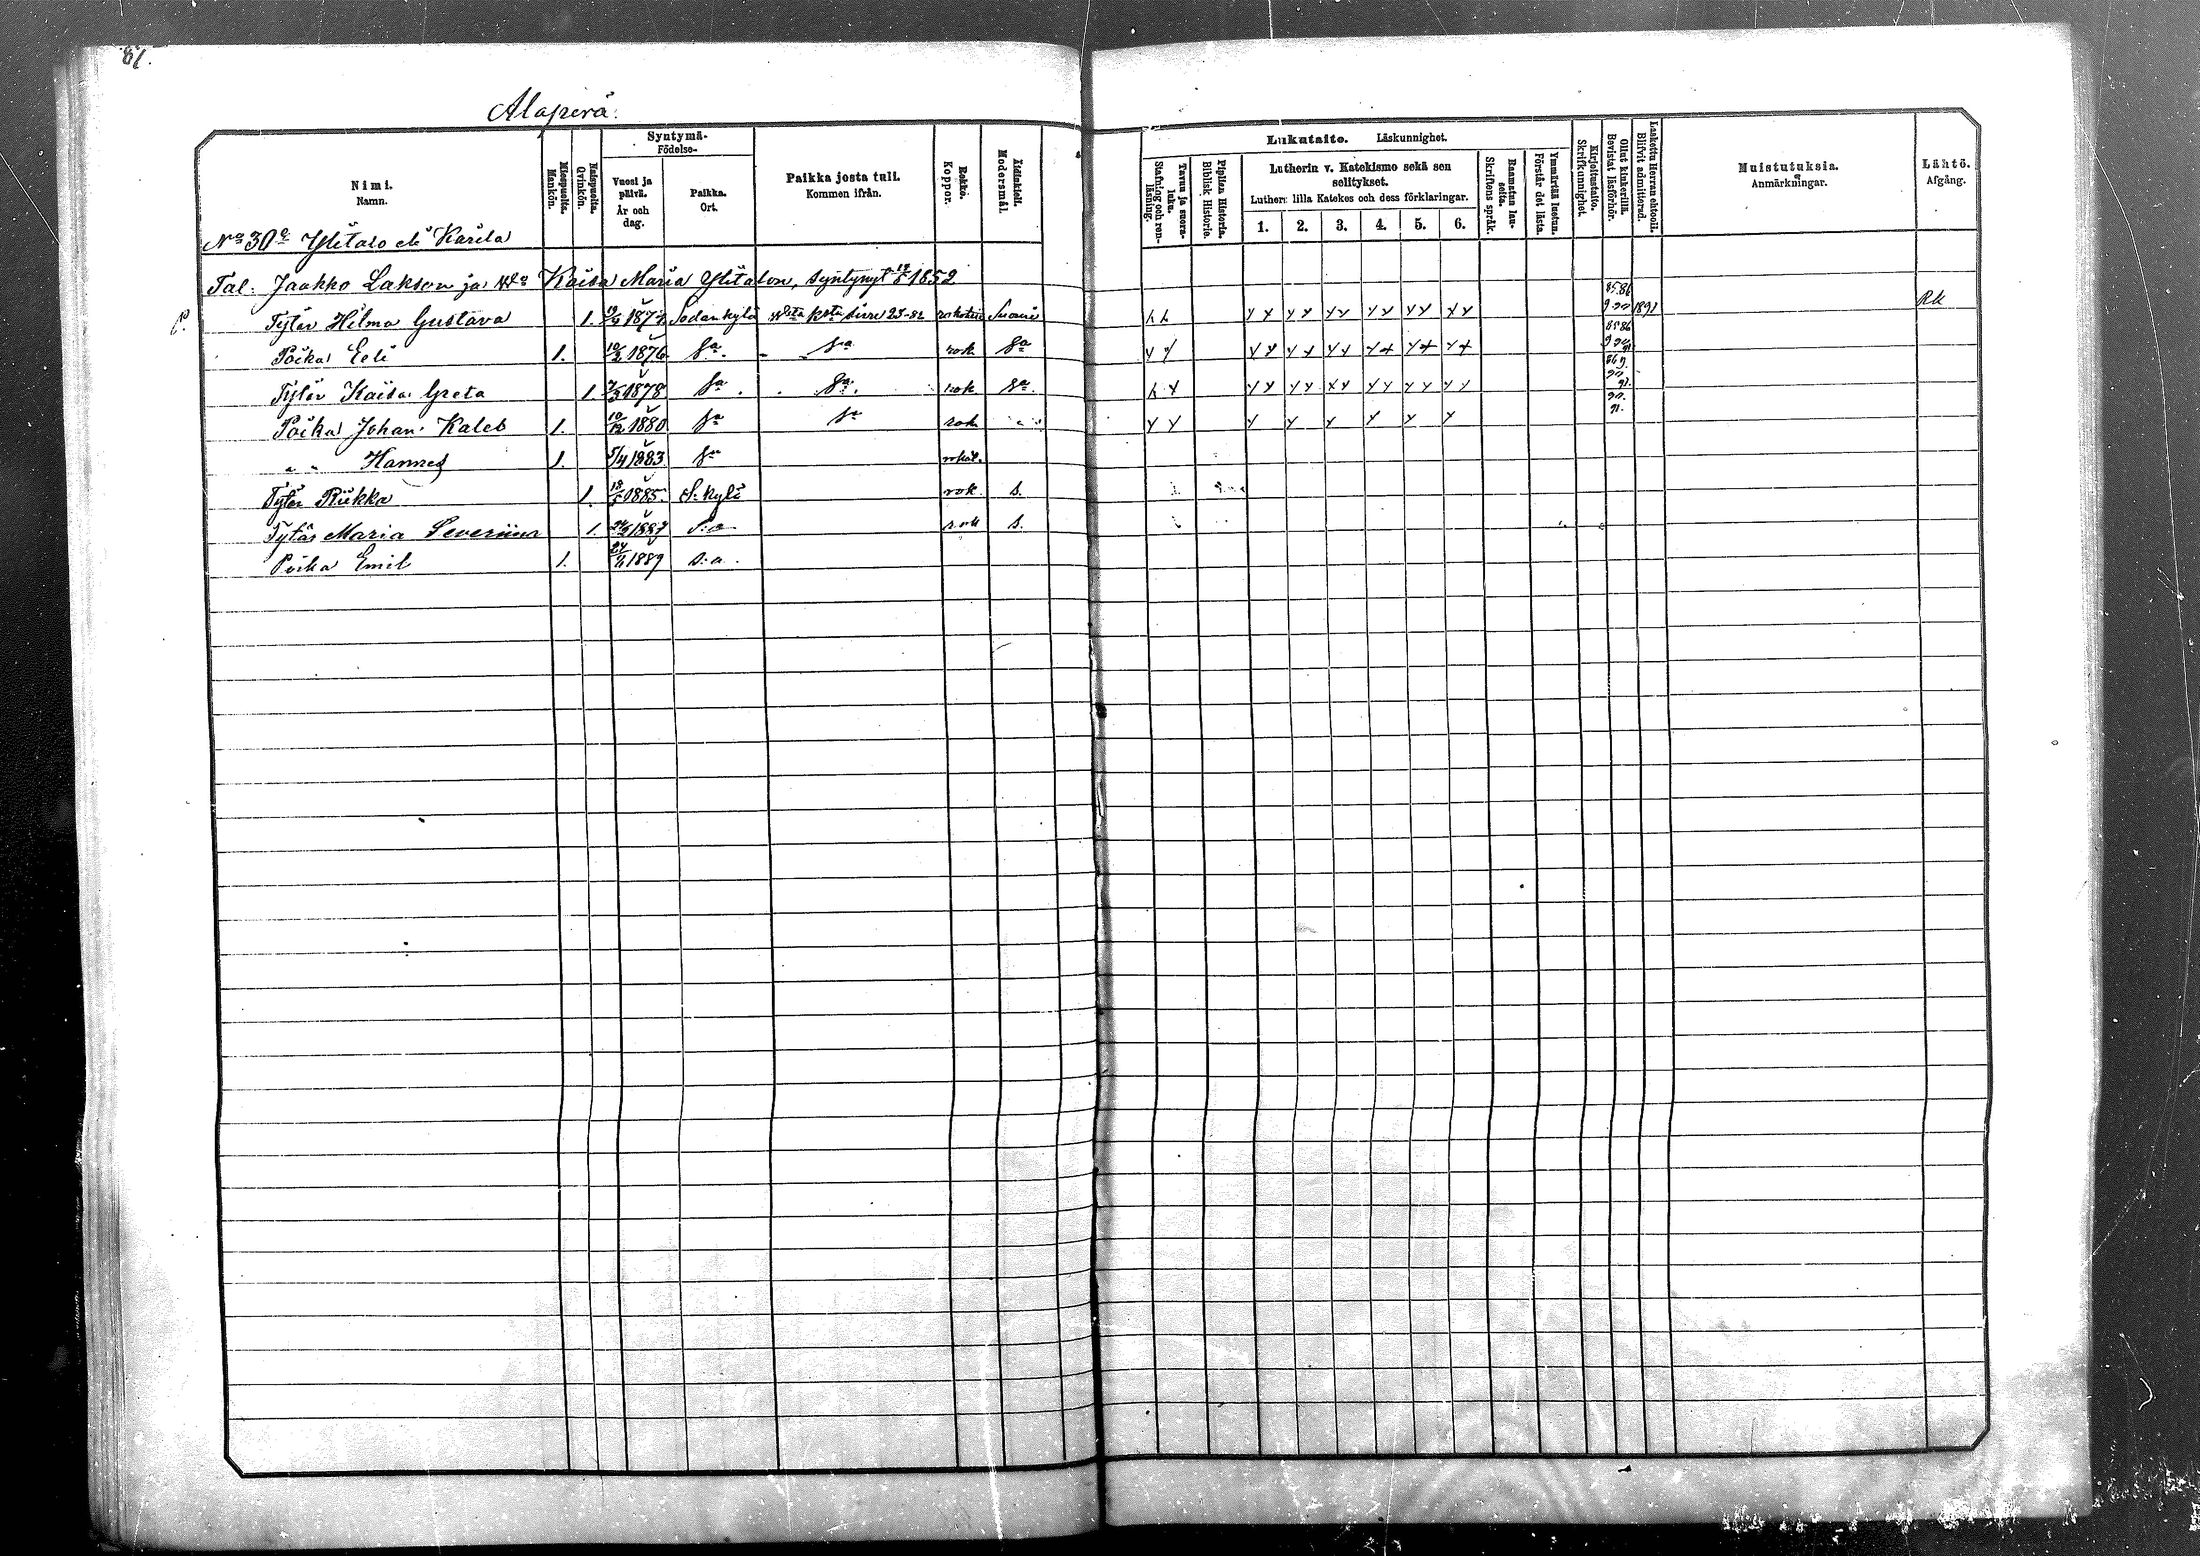 87.
Alaperä.
Nimi. Namn.
Miespuolia. Mankön.
Naispuolia. Qvinkön.
Syntymä- Födelse-
Vuosi ja päivä. År och dag.
Paikka. Ort.
Paikka josta tuli. Kommen ifrån.
Rokko. Koppor.
Äidinkieli. Modersmål.
Lukutaito. Läskunnighet.
Tavuu ja suora-luku. Stafning och ren-läsning.
Piplian Historia. Biblisk Historie.
Lutherin v. Katekismo sekä sen selitykset.
Luthers lilla Katekes och dess förklaringar.
1. 2. 3. 4. 5. 6.
Raamatun lau-seita. Skriftens språk.
Ymmärtää luetun. Förstår det lästa.
Kirjoitustaito. Skrifkunnighet.
Ollut kinkerillä. Bevistat läsförhör.
Laskettu Herran ehtooll. Blifvit admitterad.
Muistutuksia. Anmärkningar.
Lähtö. Afgång.
No 30 Ylitalo eli Karila
Tal. Jaakko Lakson ja Kaisa Maria Ylitalon, syntynyt 1852
Tytär Hilma Gustava 1. 1874 Sodankylä 23-82 Suomi x x x x x x x x x x x x 85 86 1891 Rk
Poika Eeli 1. 10/3 1876 sa. sa rok sa x x x x x x x x x x x x 85 86
Tytär Kaisa Greta 1 1878 sa. sa. rok sa. x x x x x x x x x x x x 90 91
Poika Johan Kaleb 1. 10/12 1880 sa sa rok x x x x x x 90. 91.
" " Hannes 1. 5/4 1883 sa rok.
Tytär Riikka 1. 18/5 1885. S:kylä rok. s.
Tytär Maria Severiina 1. 1887 s:a rok s.
Poika Emil 1. 1889 s:a.